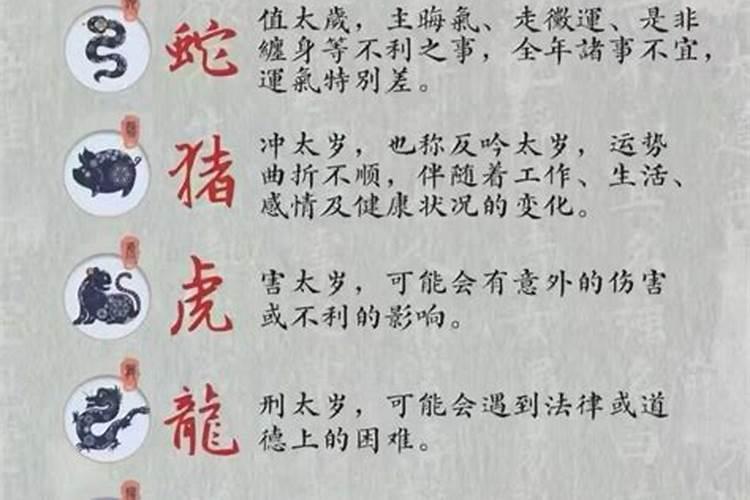 蛇
值太歲，主晦氣、走黴運、是非
纏身等不利之事，全年諸事不宜，
運氣特別差。
猪
冲太岁，也称反吟太岁，运势
曲折不顺，伴随着工作、生活、
感情及健康状况的变化。
虎
害太岁，可能会有意外的伤害
或不利的影响。
龍
刑太岁，可能会遇到法律或道
德上的困难。